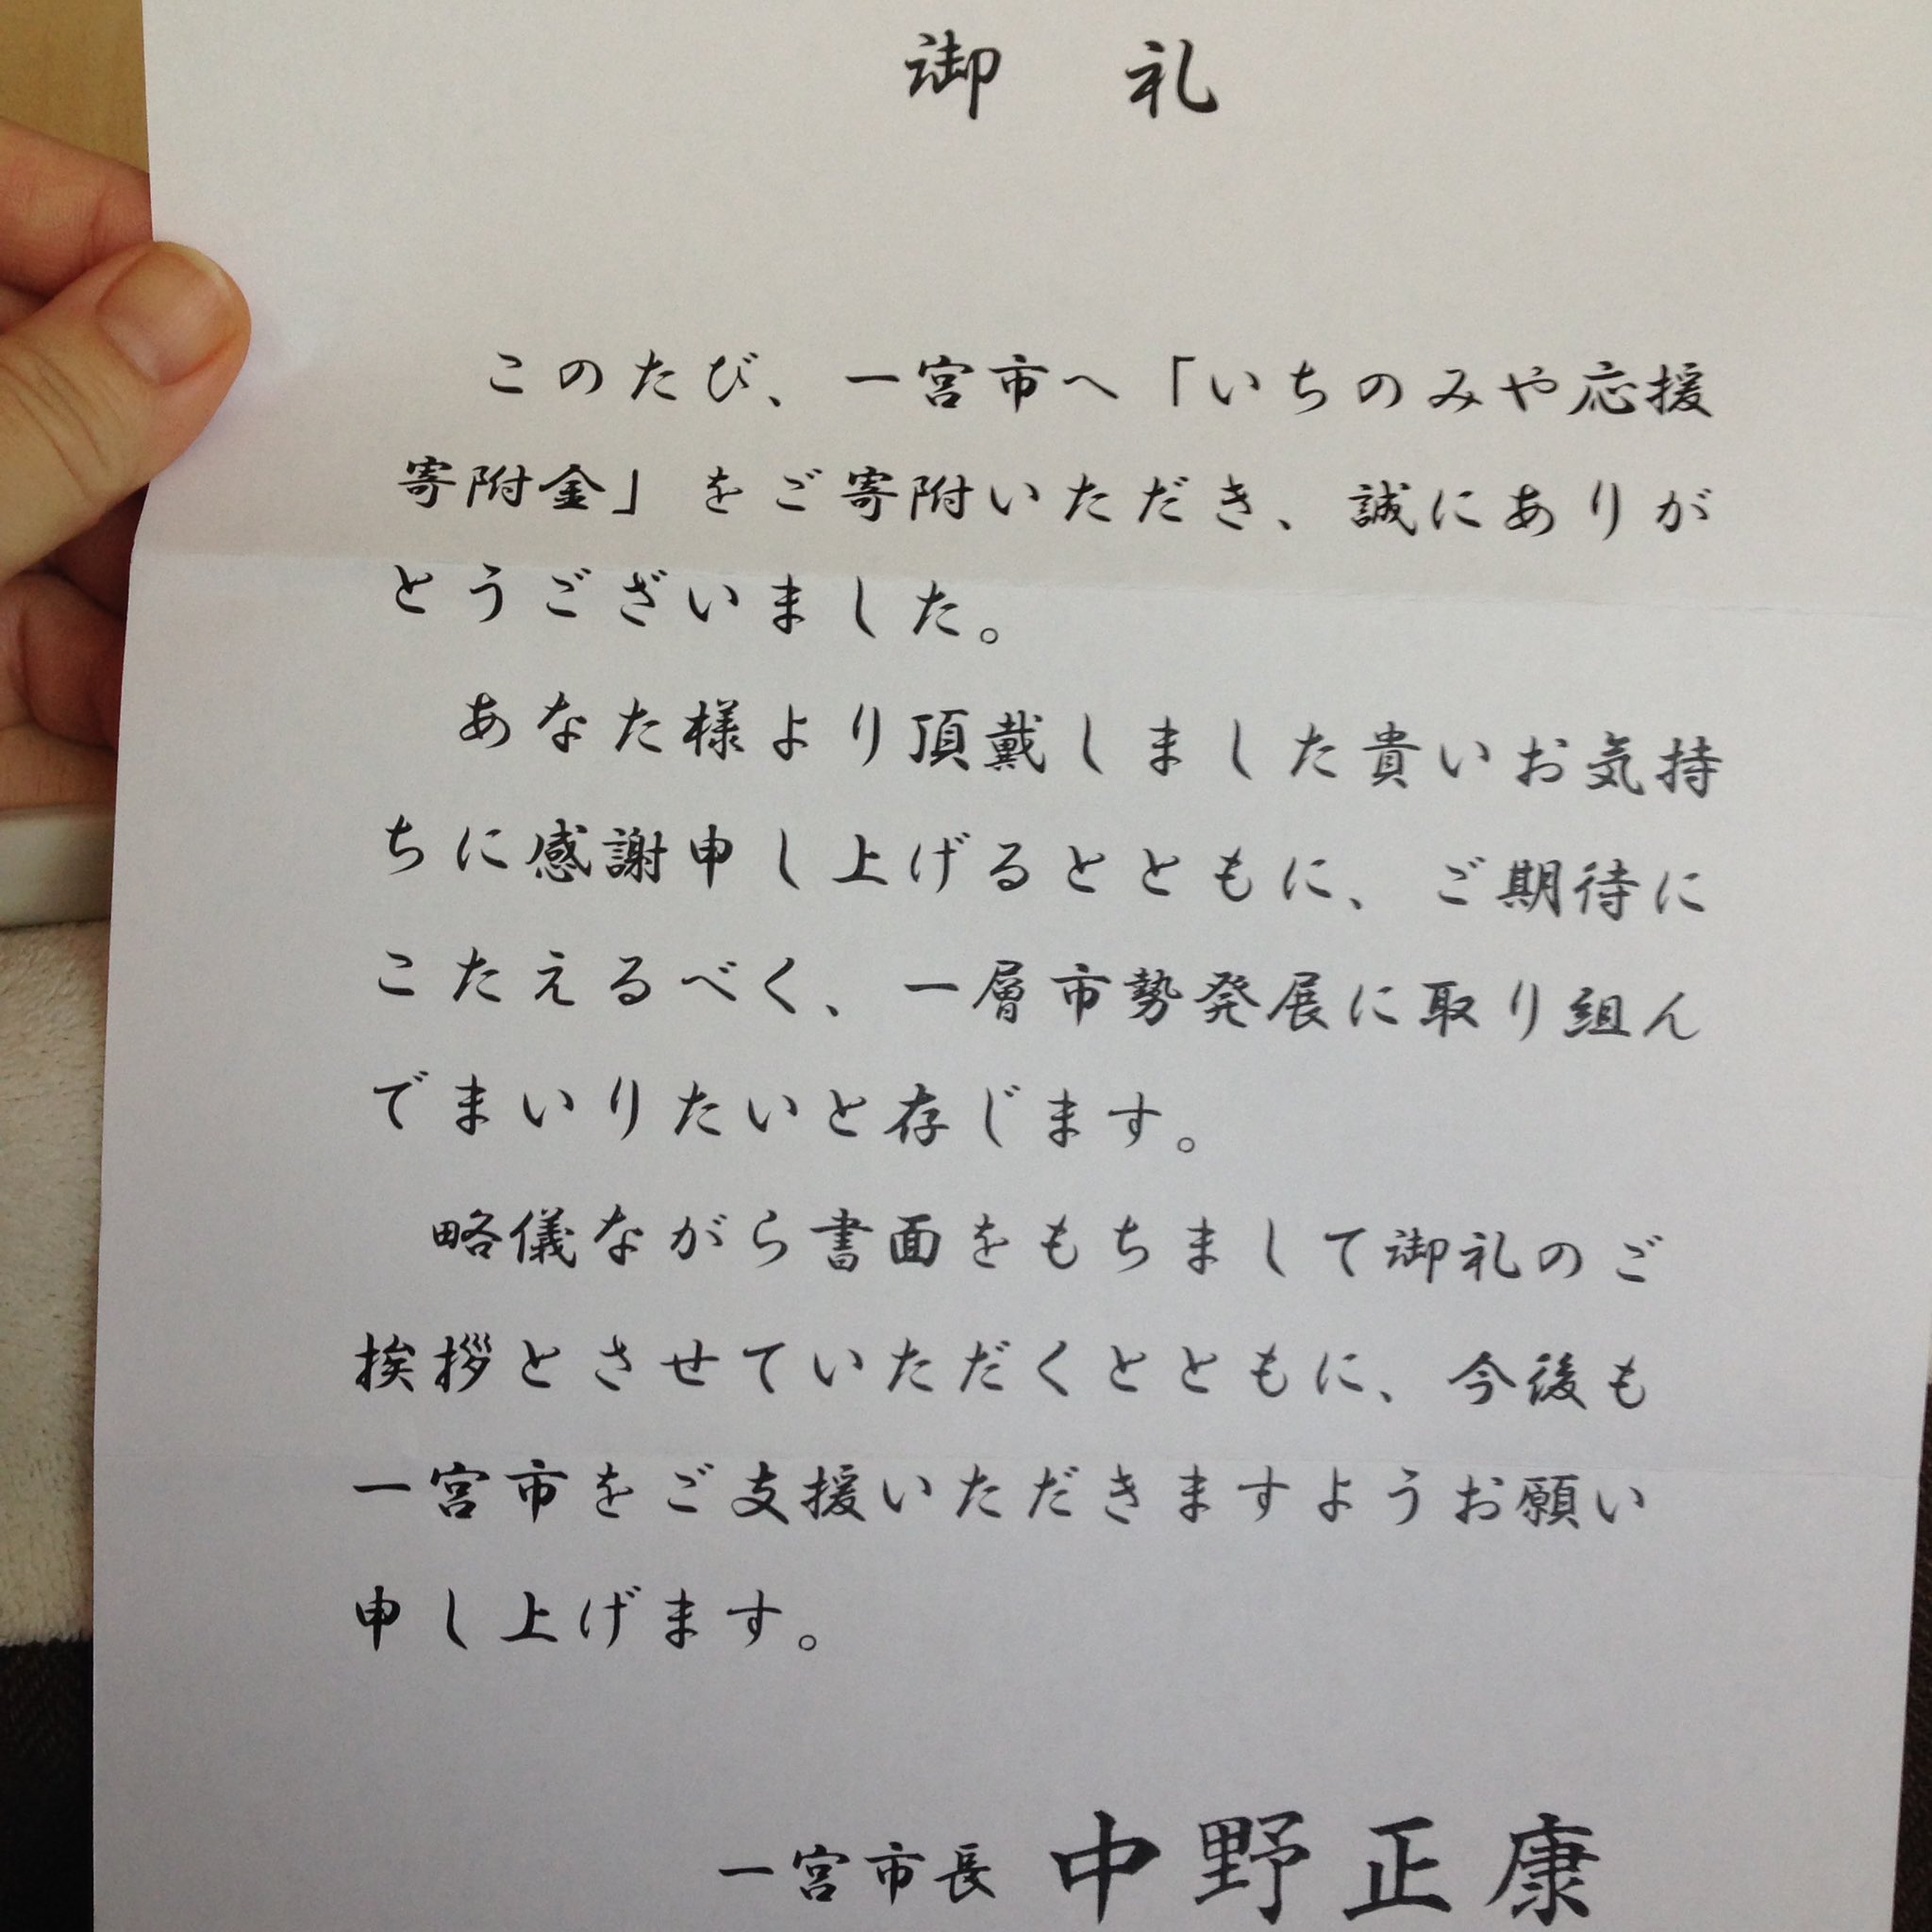 御礼
このたび、一宮市へ「いちのみや応援
寄附金」をご寄附いただき、誠にありが
とうございました。
あなた様より頂戴しました貴いお気持
ちに感謝申し上げるとともに、ご期待に
こたえるべく、一層市勢発展に取り組ん
でまいりたいと存じます。
略儀ながら書面をもちまして御礼のご
挨拶とさせていただくとともに、今後も
一宮市をご支援いただきますようお願い
申し上げます。
一宮市長 中野正康